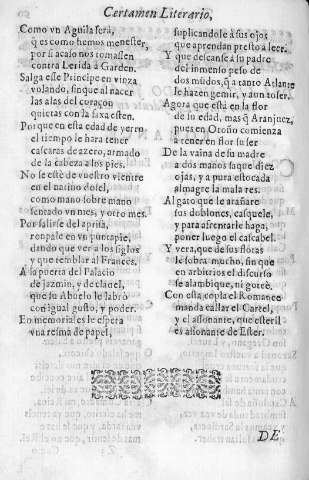 Certamen Literario,
Como vn Aguila será,
q̃ es como hemos menester,
por si acaso nos tomassen
contra Lerida à Garden.
Salga esse Principe en vinza
volando, sin que al nacer
las alas del coraçon
quietas con la faxa esten.
Porque en esta edad de yerro
el tiempo le hara tener
cascaras de azero, armado
de la cabeza a los pies.
No le estè de vuestro vientre
en el natiuo dosel,
como mano sobre mano
sentado vn mes, y otro mes.
Por salirse del aprisa,
rompale en vn puntapie,
dando que ver a los siglos
y que temblar al Frances.
A la puerta del Palacio
de jazmin, y de clauel,
que su Abuelo le labrò
con igual gusto, y poder.
En memoriales le espera
vna resma de papel,
suplicandole a sus ojos
que aprendan presto a leer.
Y que descanse a su padre
del inmenso peso de
dos mũdos, q̃ a tanto Atlante
le hazen gemir, y aun toser.
Agora que está en la flor
de su edad, mas q̃ Aranjuez,
pues en Otoño comienza
a tener en flor su ser
De la vaina de su madre
a dos manos saque diez
ojas, y a pura estocada
almagre la mala res.
Al gato que le arañare
sus doblones, casquele,
y para afrentarle haga,
poner luego el cascabel.
Y vera, que de sus flotas
le sobra mucho, sin que
en arbitrios el discurso
se alambique, ni gotèe.
Con esta copla el Romance
manda callar el Cartel,
y el assonante, que esteril
es assonante de Ester.
DE